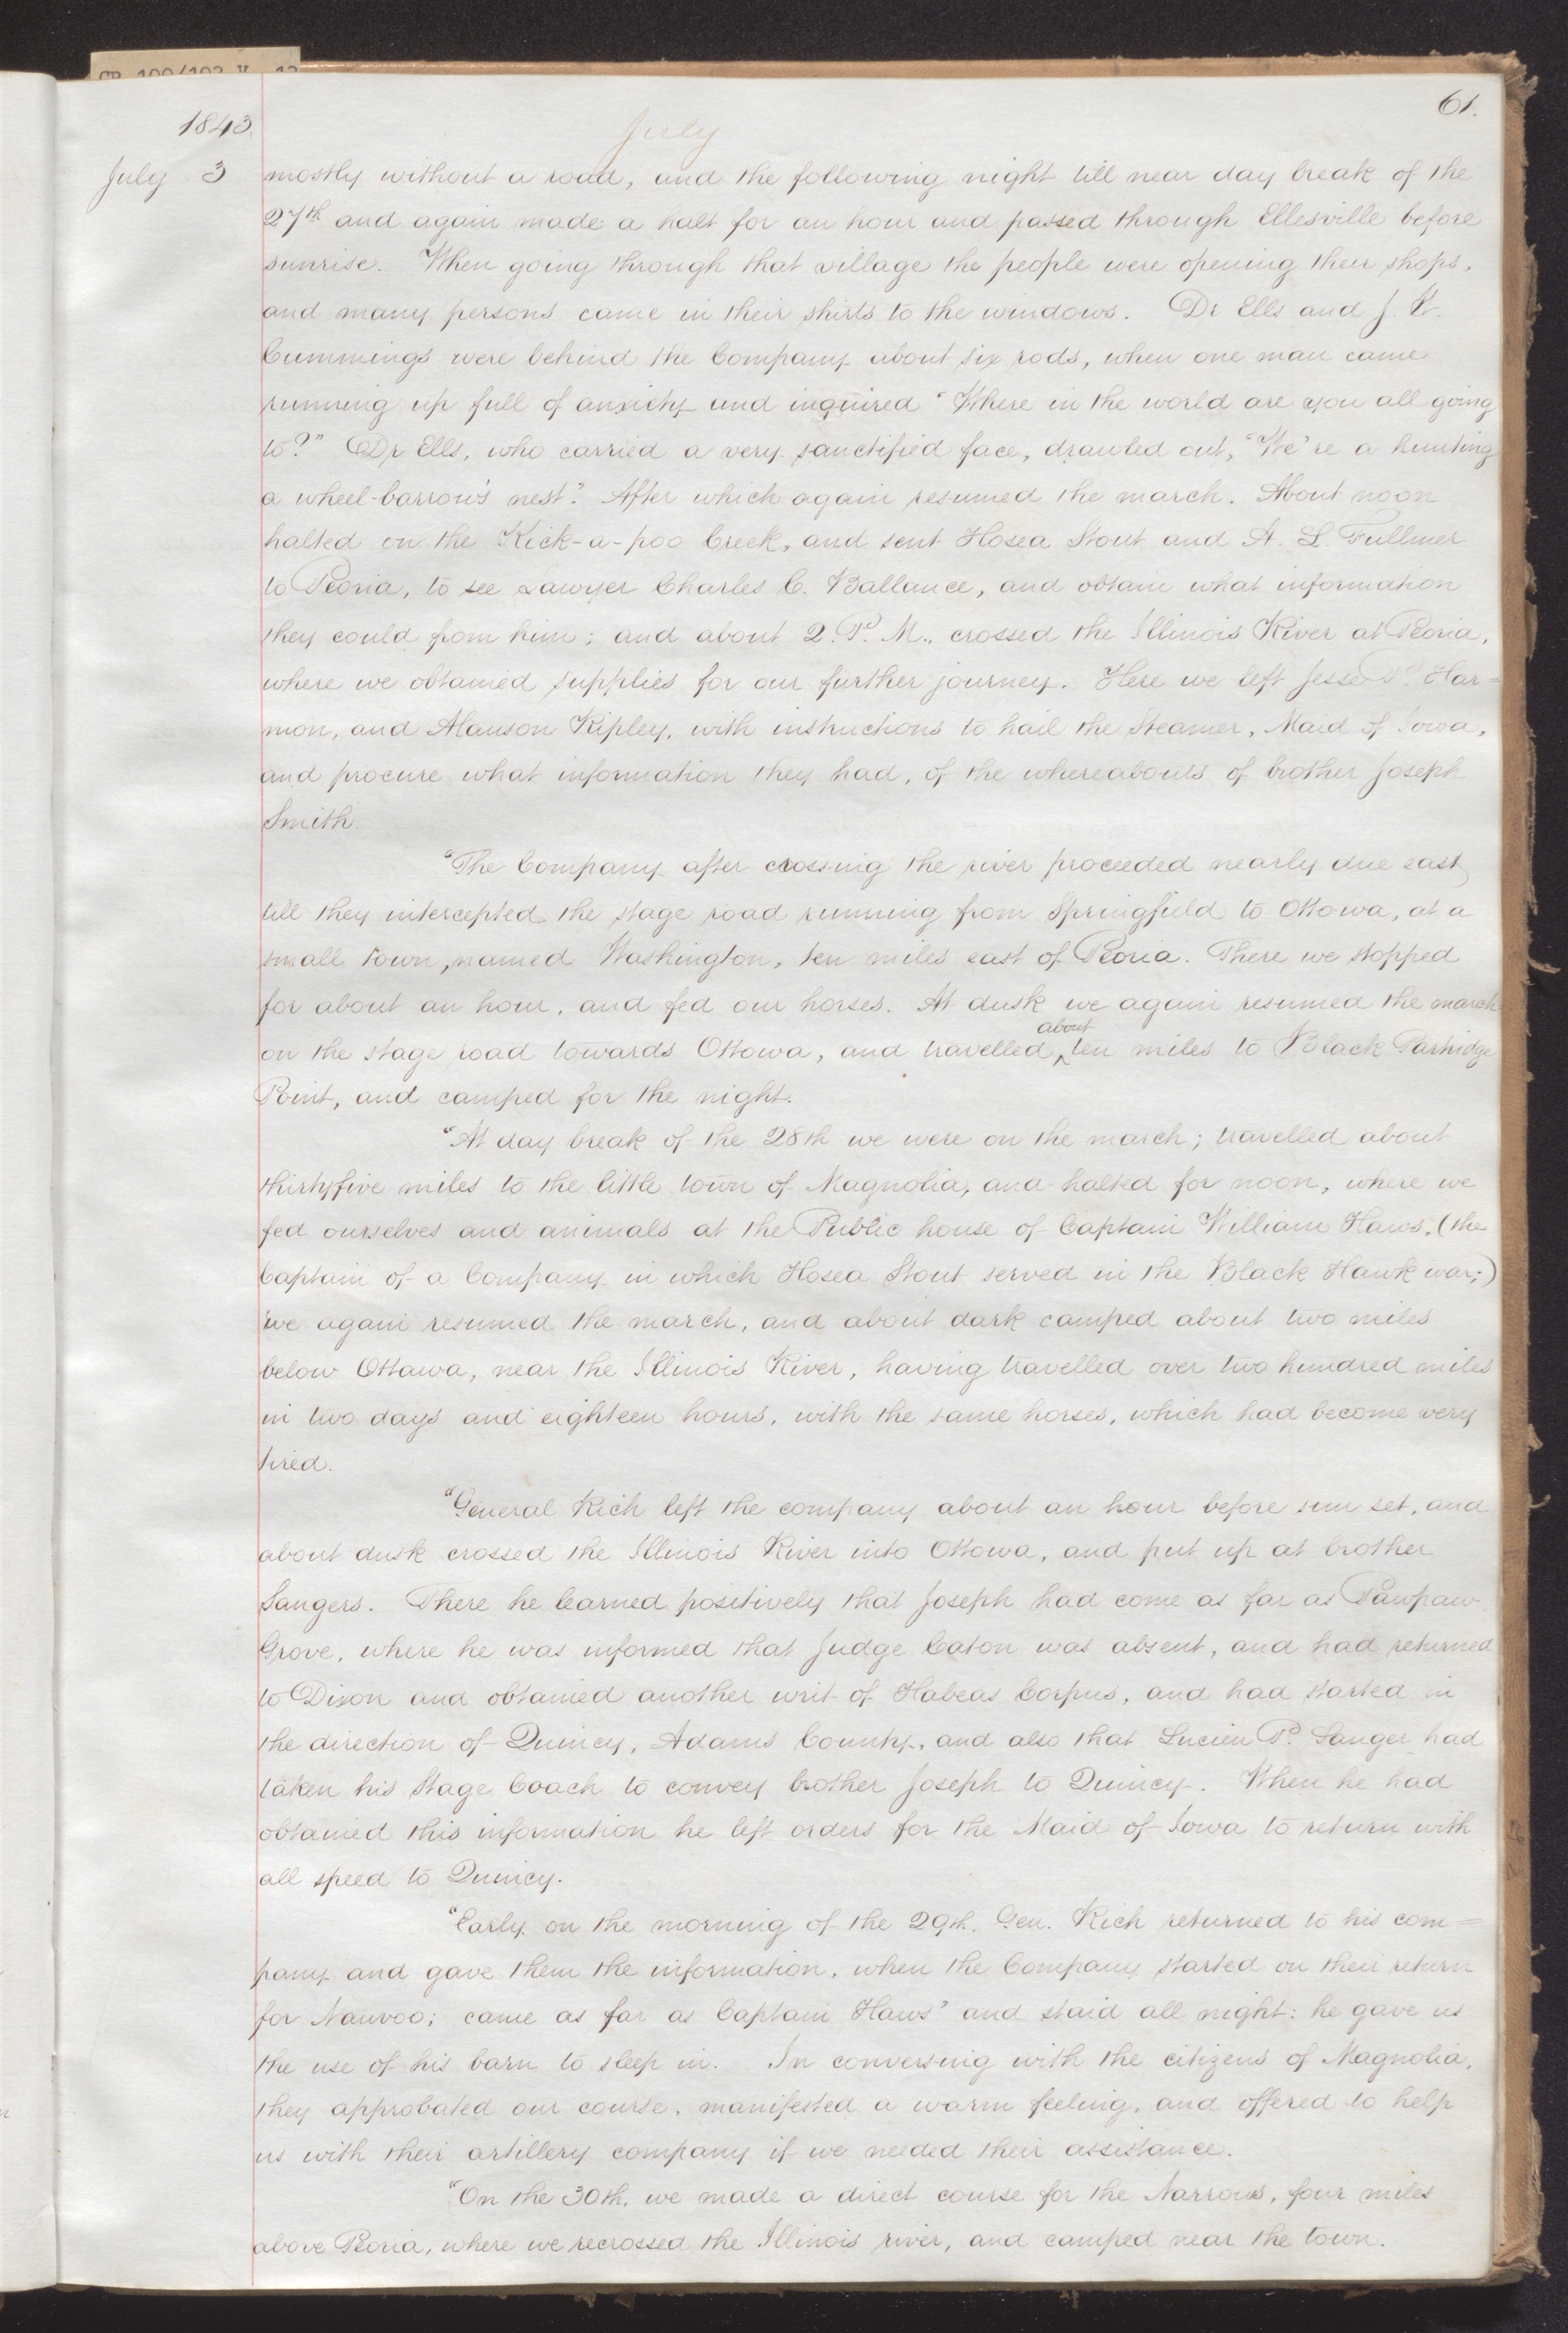 61.
1843.
July
July 3 mostly without a road, and the following night till near day break of the
27th and again made a halt for an hour and passed through Ellesville before
sunrise. When going through that village the people were opening their shops,
and many persons came in their shirts to the windows. Dr Ells and J.
Cummings were behind the Company about six rods, when one man came
running up full of anxiety and inquired "Where in the world are you all going
to?" Dr Ells, who carried a very sanctified face, drawled out, "We're a hunting
a wheel-barrow's nest". After which again resumed the march. About noon
halted on the Kick-a-poo Creek, and sent Hosea Stout and A. L. Fullmer
to Peoria, to see Lawyer Charles C. Ballance, and obtain what information
they could from him; and about 2. P. M., crossed the Illinois River at Peoria,
where we obtained supplies for our further journey. Here we left Jesse P. Har=
mon, and Alanson Ripley, with instructions to hail the Steamer, Maid of Iowa,
and procure what information they had, of the whereabouts of brother Joseph
Smith.
"The Company after crossing the river proceeded nearly due east,
till they intercepted the stage road running from Springfield to Ottowa, at a
small town, named Washington, ten miles east of Peoria. There we stopped
for about an hour, and fed our horses. At dusk we again resumed the march
about
on the stage road towards Ottowa, and travelled ^ ten miles to Black Partridge
Point, and camped for the night.
"At day break of the 28th we were on the march; travelled about
thirtyfive miles to the little town of Magnolia, and halted for noon, where we
fed ourselves and animals at the Public house of Captain William Haws, (the
Captain of a Company in which Hosea Stout served in the Black Hawk war;)
we again resumed the march, and about dark camped about two miles
below Ottawa, near the Illinois River, having travelled over two hundred miles
in two days and eighteen hours, with the same horses, which had become very
tired.
"General Rich left the company about an hour before sun set, and
about dusk crossed the Illinois River into Ottowa, and put up at brother
Sangers. There he learned positively that Joseph had come as far as Pawpaw
Grove, where he was informed that Judge Caton was absent, and had returned
to Dixon and obtained another writ of Habeas Corpus, and had started in
the direction of Quincy, Adams County, and also that Lucien P. Sanger had
taken his Stage Coach to convey brother Joseph to Quincy. When he had
obtained this information he left orders for the Maid of Iowa to return with
all speed to Quincy.
"Early on the morning of the 29th. Gen. Rich returned to his com=
pany and gave them the information, when the Company started on their return
for Nauvoo; came as far as Captain Haws' and staid all night: he gave us
the use of his barn to sleep in. In conversing with the citizens of Magnolia,
they approbated our course, manifested a warm feeling, and offered to help
us with their artillery company if we needed their assistance.
"On the 30th. we made a direct course for the Narrows, four miles
above Peoria, where we recrossed the Illinois river, and camped near the town.